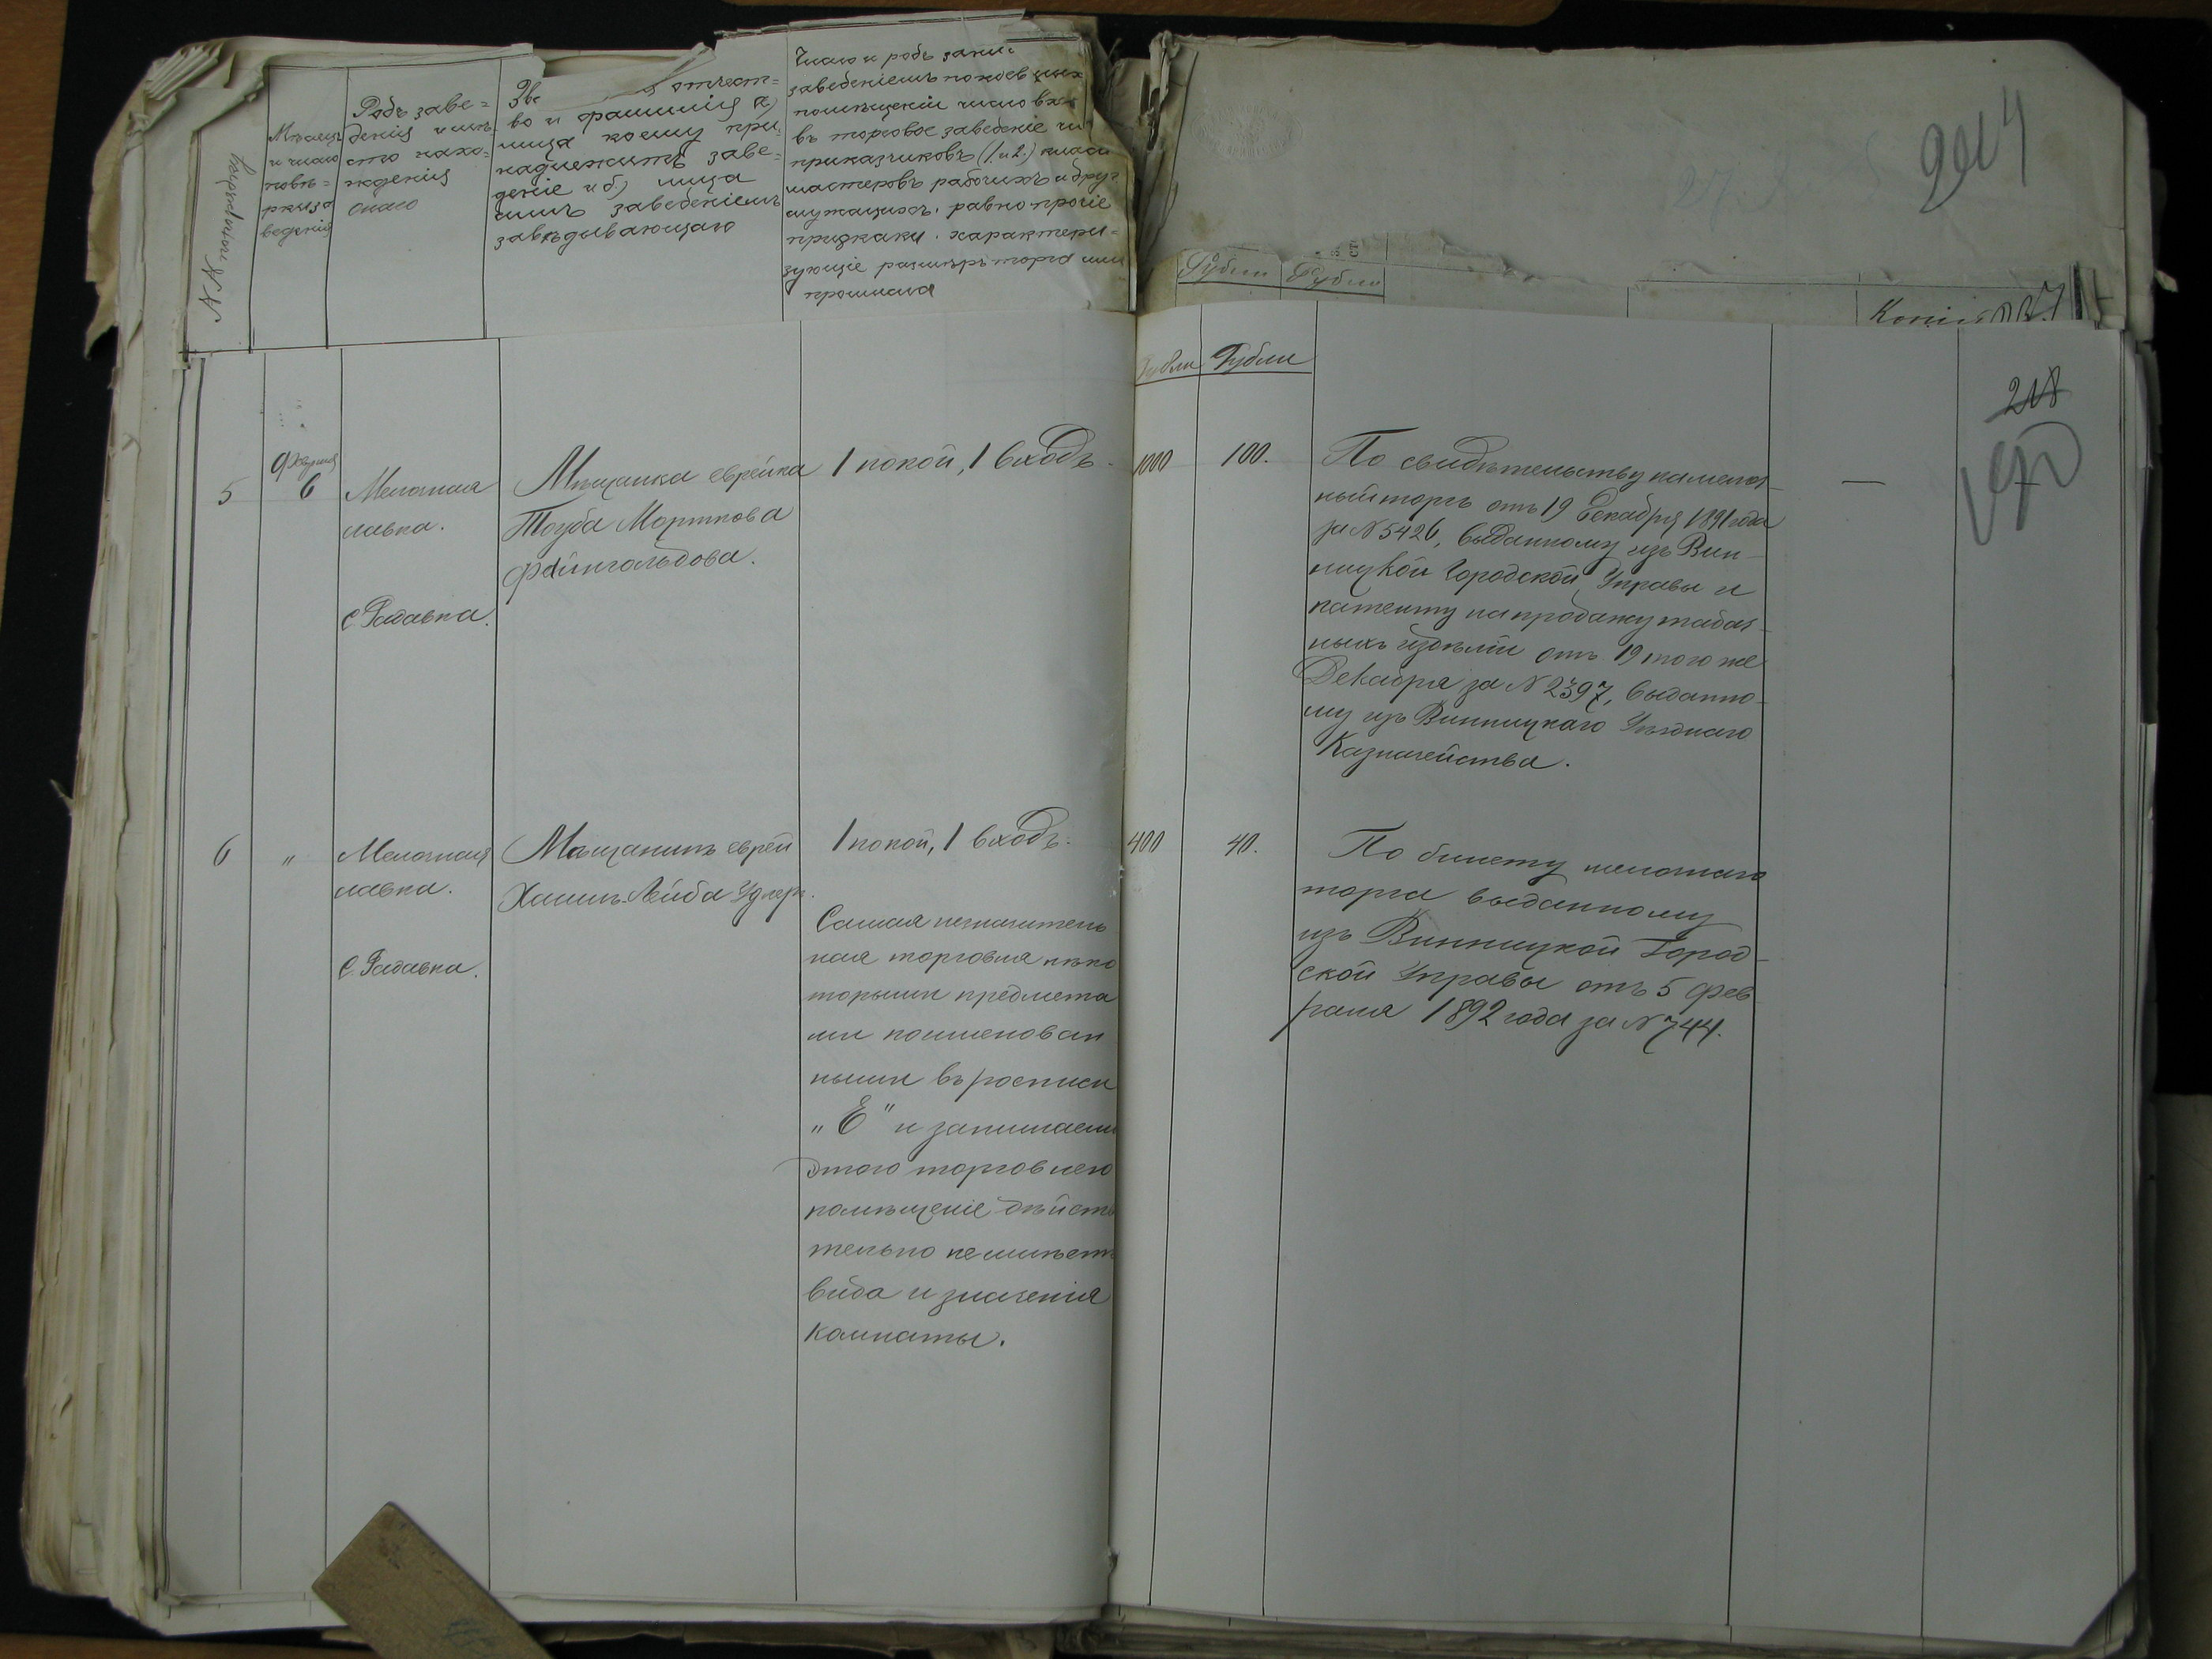 №№ по порядку
Мѣсяцъ
и число
повѣ=
рки за
веденія
Родъ заве=
денія и мѣ-
сто нахо=
жденія
онаго
Зва отчест=
во и фамилія а)
лица коему при-
надлежитъ заве=
деніе и б) лица
симъ заведеніемъ
завѣдывающаго
Число и родъ зани-
заведеніемъ покоевъ
помѣщеніи число вхо
въ торговое заведеніе чи
приказчиковъ (1 и 2) класс
мастеровъ рабочихъ и друг
служащихъ, равно прочіе
признаки характери=
зующіе размѣръ торга или
промысла
904
Рубли Рубли
Копія
Рубли Рубли
218
5
Февраля
6
Мелочная
лавка.
с. Радавка.
Мѣщанка еврейка
Тоуба Морткова
Файнгольдова.
1 покой, 1 входъ.
1000
100.
По свидѣтельству на мелоч-
ный торгъ отъ 19 Декабря 1891 года
за № 5426, выданному изъ Вин-
ницкой Городской Управы и
патенту на продажу табач-
ныхъ издѣлій отъ 19 того же
Декабря за № 2397, выданно-
му изъ Винницкаго Уѣзднаго
Казначейства.
—
6
"
Мелочная
лавка.
с. Радавка.
Мѣщанинъ еврей
Хаимъ-Лейба Удлеръ.
1 покой, 1 входъ.
Самая незначитель
ная торговля нѣко
торыми предмета
ми поименован
ными въ росписи
„Е" и занимаемое
этого торговлею
помѣщеніе дѣйств
тельно не имѣетъ
вида и значенія
комнаты.
400
40.
По билету мелочнаго
торга выданному
изъ Винницкой Город-
ской Управы отъ 5 Фев
раля 1892 года за № 744.